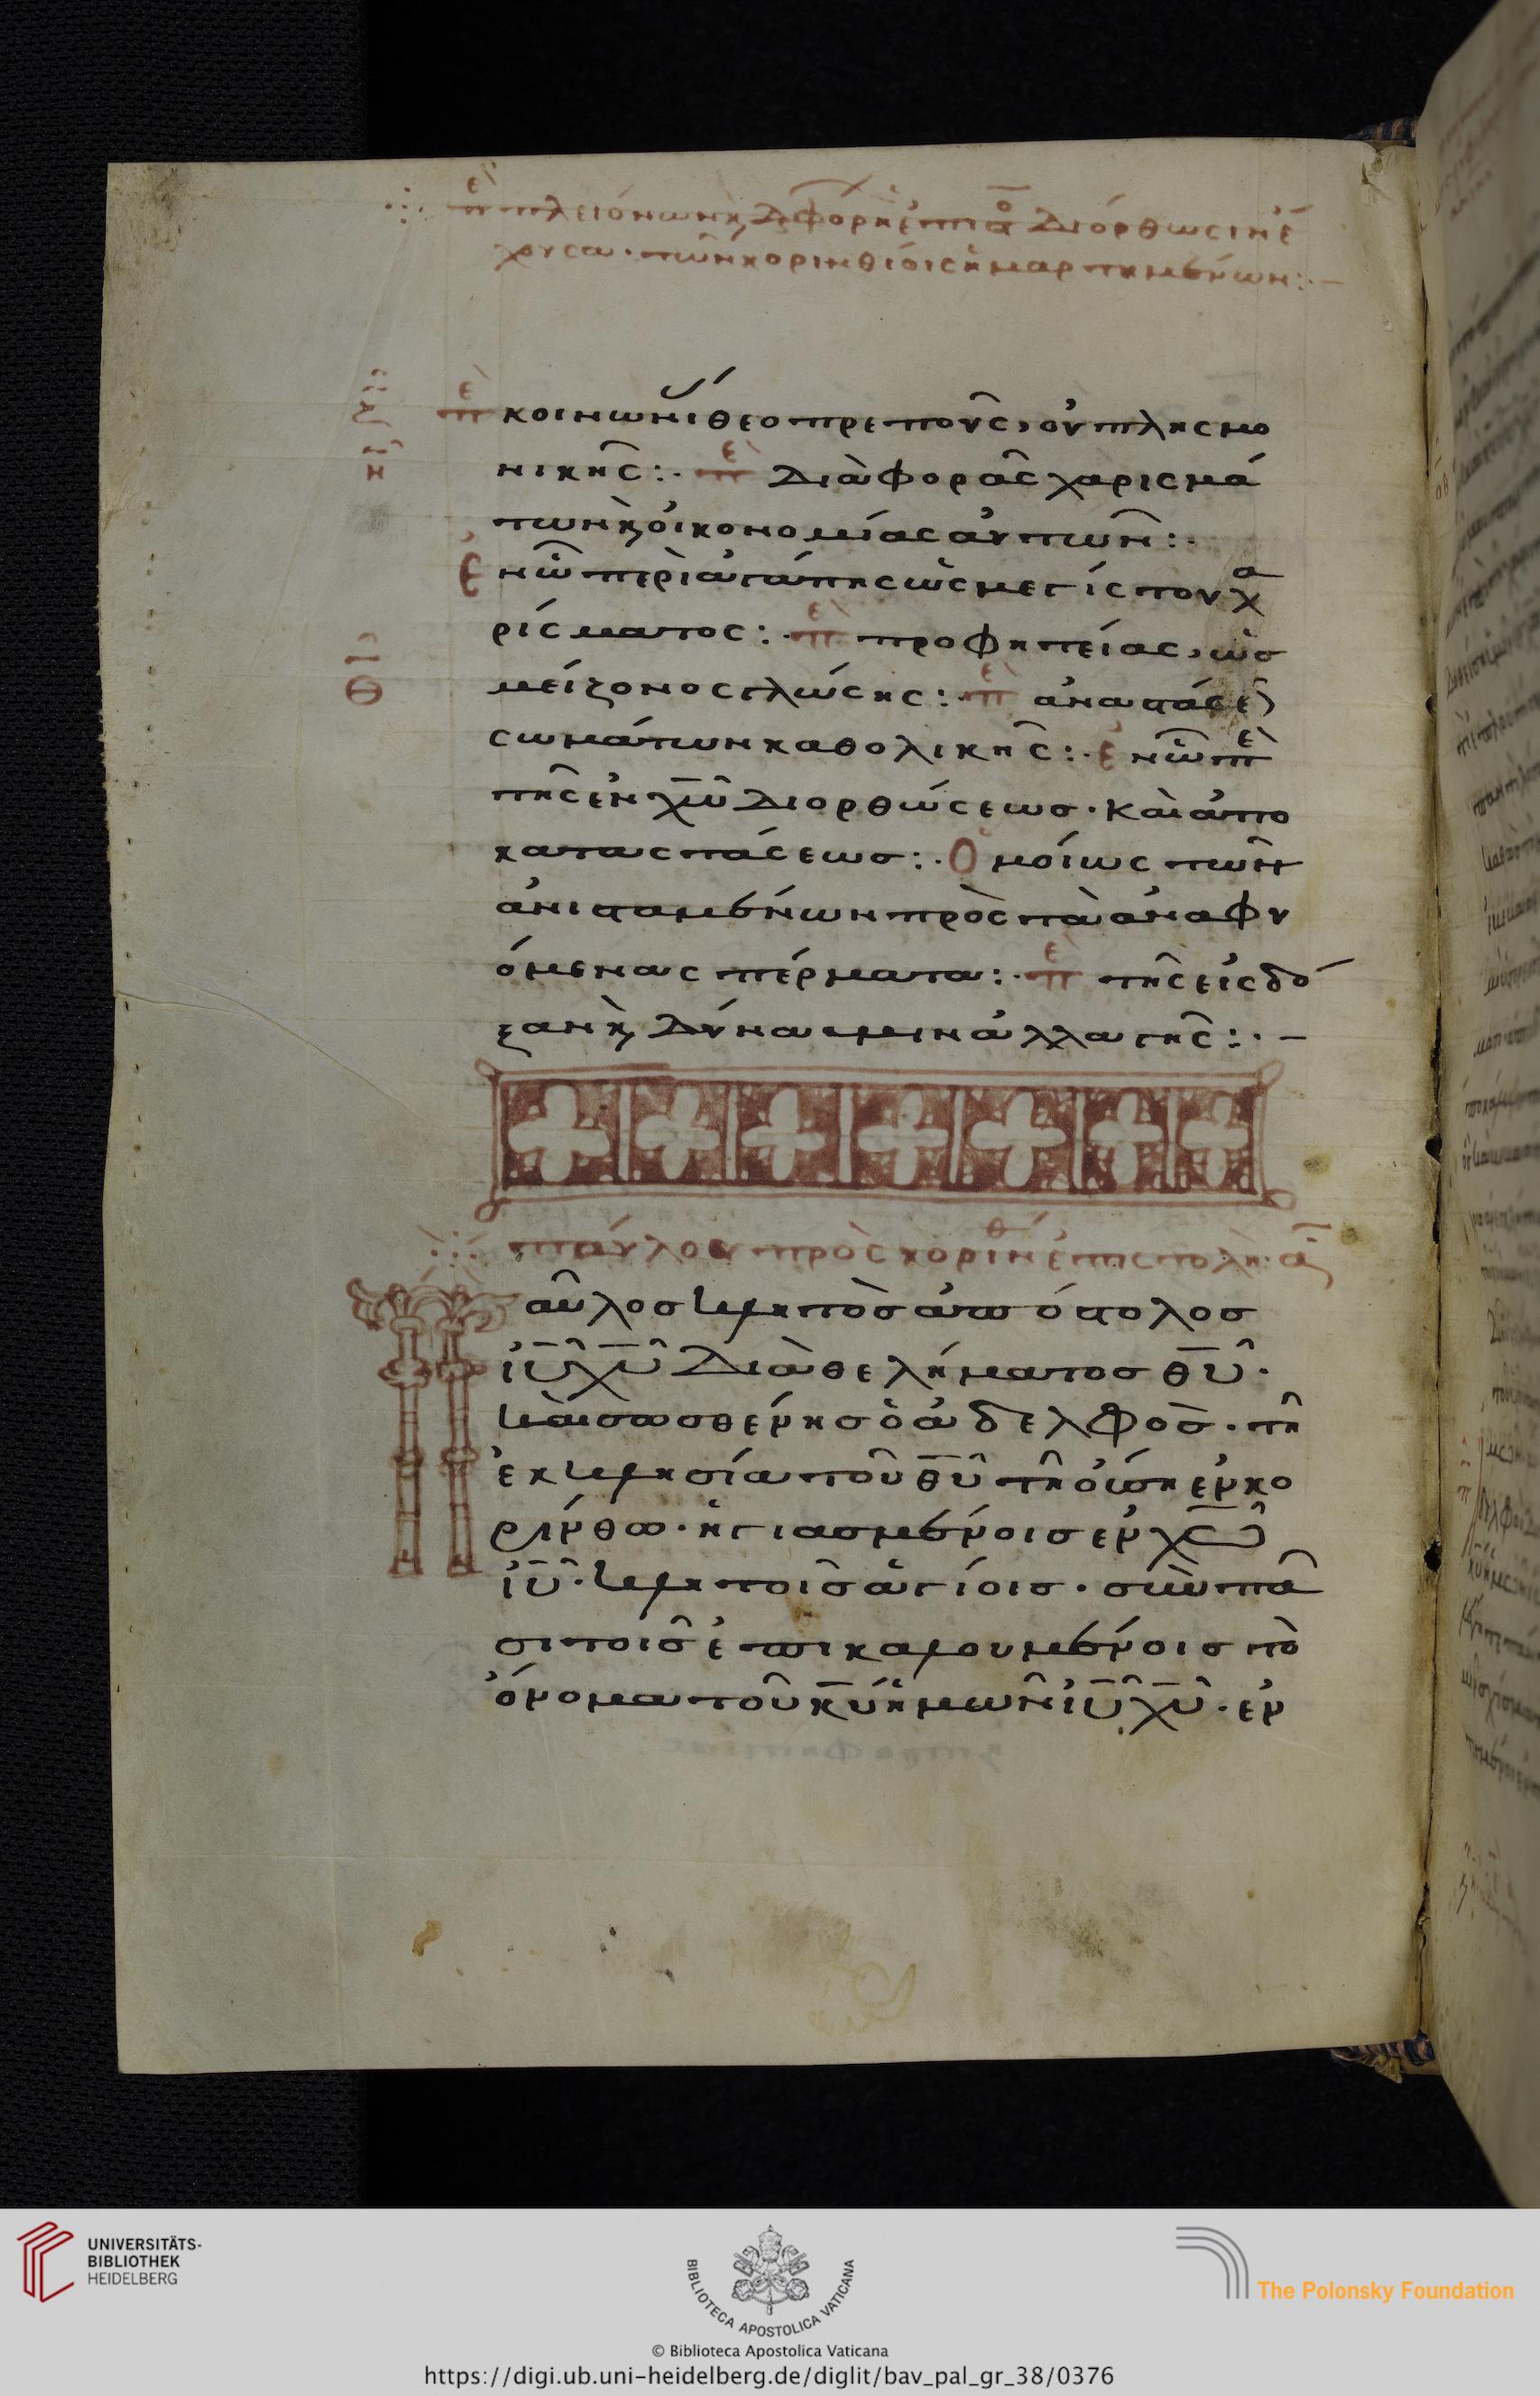 πε πλειόνων κ διαφόρ κεπια διόρθωσιν ἐ
χουσα· τῶν κορινθίοις ἡμαρτημένων:·—
ιζ
πε κοινωνί θεοπρεποῦς, οὐ πλησμο
ιη
νικῆς:· πε διαφορᾶς χαρισμά
των κ οἰκονομίας αὐτῶν:·
Ἐν ῷ περὶ ἀγάπης ὡς μεγίστου χα
ρίσματος:· πε προφητείας, ὡσ
ιθ
μείζονος γλώσης:· πε ἀναστάσε
σωμάτων καθολικῆς:· ἐν ῷ πε
τῆς ἐν χω διορθώσεωσ· καὶ ἀπο
καταστάσεωσ:· Ὁμοίως τῶν
ἀνισταμένων πρὸς τὰ ἀναφυ
όμενα σπέρματα:· πε τῆς εἰς δό
ξαν κ δύναμιν ἀλλαγῆς:·—
παύλου πρὸς κορινθ ἐπιστολὴ· α
Παῦλοσ κλητὸσ ἀπόστολοσ
ἰυ χυ διὰ θελήματοσ θυ·
καὶ σωσθένησ ὁ ἀδελφὸσ· τῆ
ἐκκλησία τοῦ θυ τῆ οὔση ἐν κο
ρίνθω· ἡγιασμένοισ ἐν χω
ἰυ· κλητοῖσ ἁγίοισ· σὺν πᾶ
σι τοῖσ ἐπικαλουμένοισ τὸ
ὄνομα τοῦ κυ ἡμῶν ἰυ χυ· ἐν
UNIVERSITÄTS-
BIBLIOTHEK
HEIDELBERG
BIBLIOTECA APOSTOLICA VATICANA
The Polonsky Foundation
© Biblioteca Apostolica Vaticana
https://digi.ub.uni-heidelberg.de/diglit/bav_pal_gr_38/0376